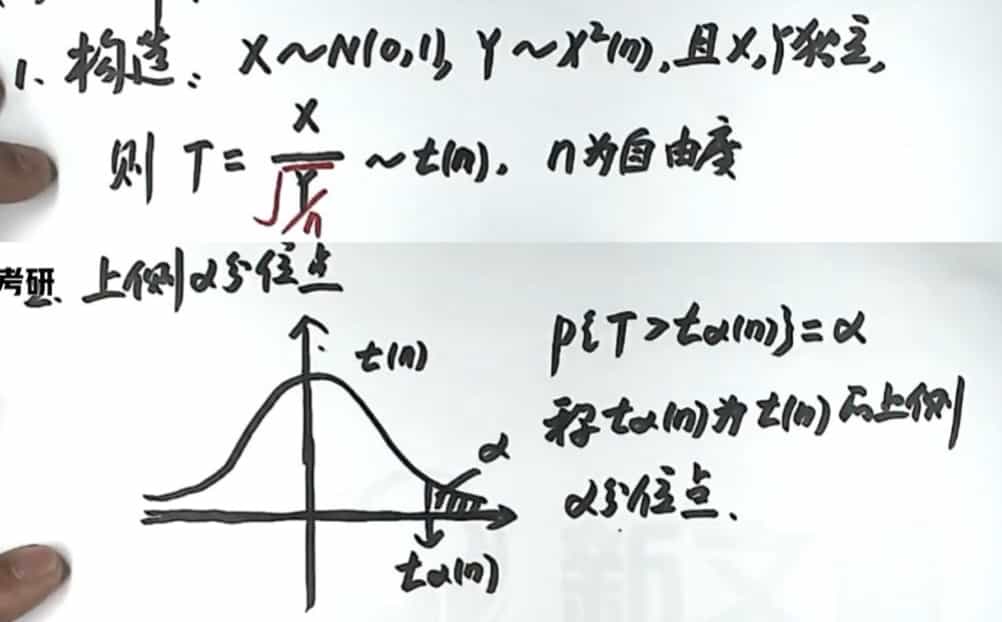 1、构造：X~N(0,1), Y~χ²(n), 且X,Y独立,
则 T = X/√(Y/n) ~t(n). n为自由度
考研
二、上侧α分位点
t(n)
α
tα(n)
P{T>tα(n)}=α
称tα(n)为t(n)的上侧
α分位点、